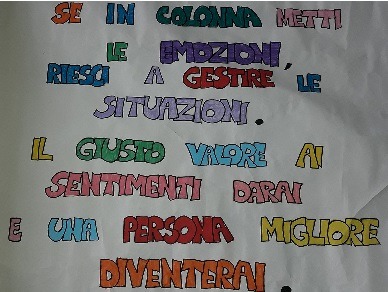 SE IN COLONNA METTI
LE EMOZIONI,
RIESCI A GESTIRE LE
SITUAZIONI.
IL GIUSTO VALORE AI
SENTIMENTI DARAI
E UNA PERSONA MIGLIORE
DIVENTERAI.